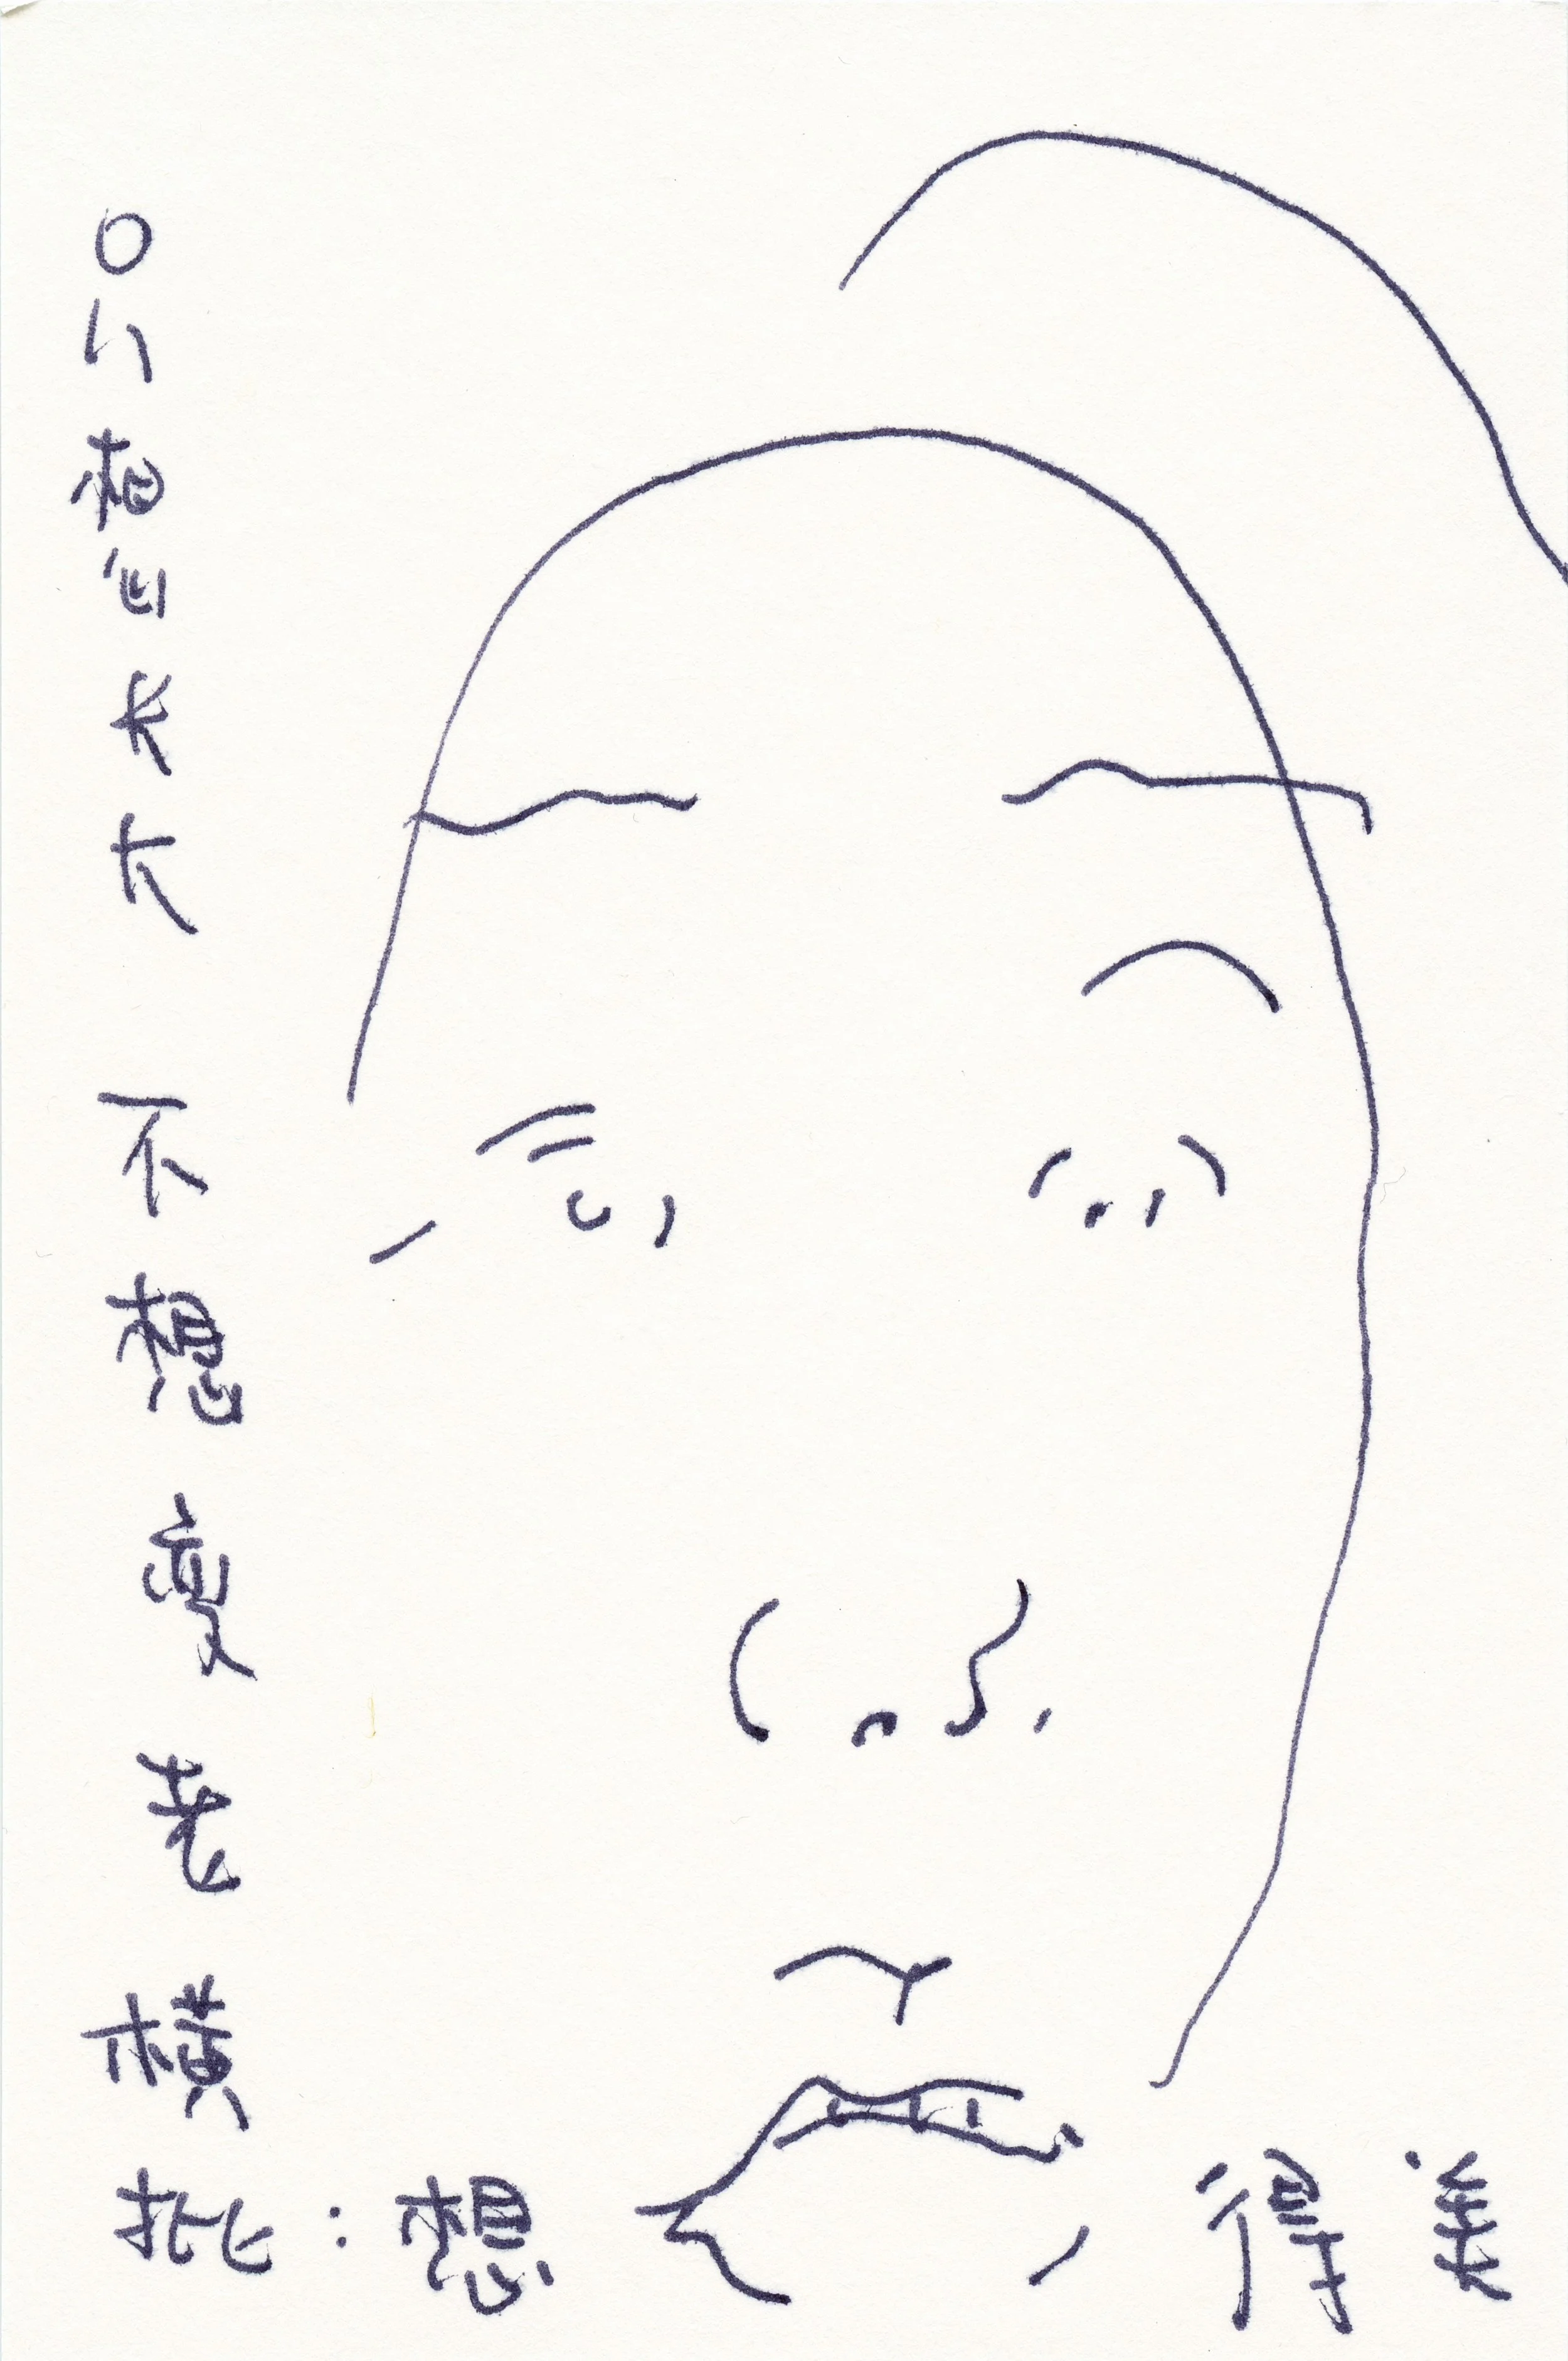 只想长大 不想变老
横批:想得美